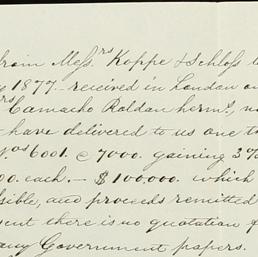 from Messrs Koppe & Schloss
1877 - received in London on
Camacho Roldan herms,
have delivered to us one
Nos 6001. @ 7000. gaining 3%
00. each - $100.000. which
sible, and proceeds remitted
sent there is no quotation f
any Government papers.